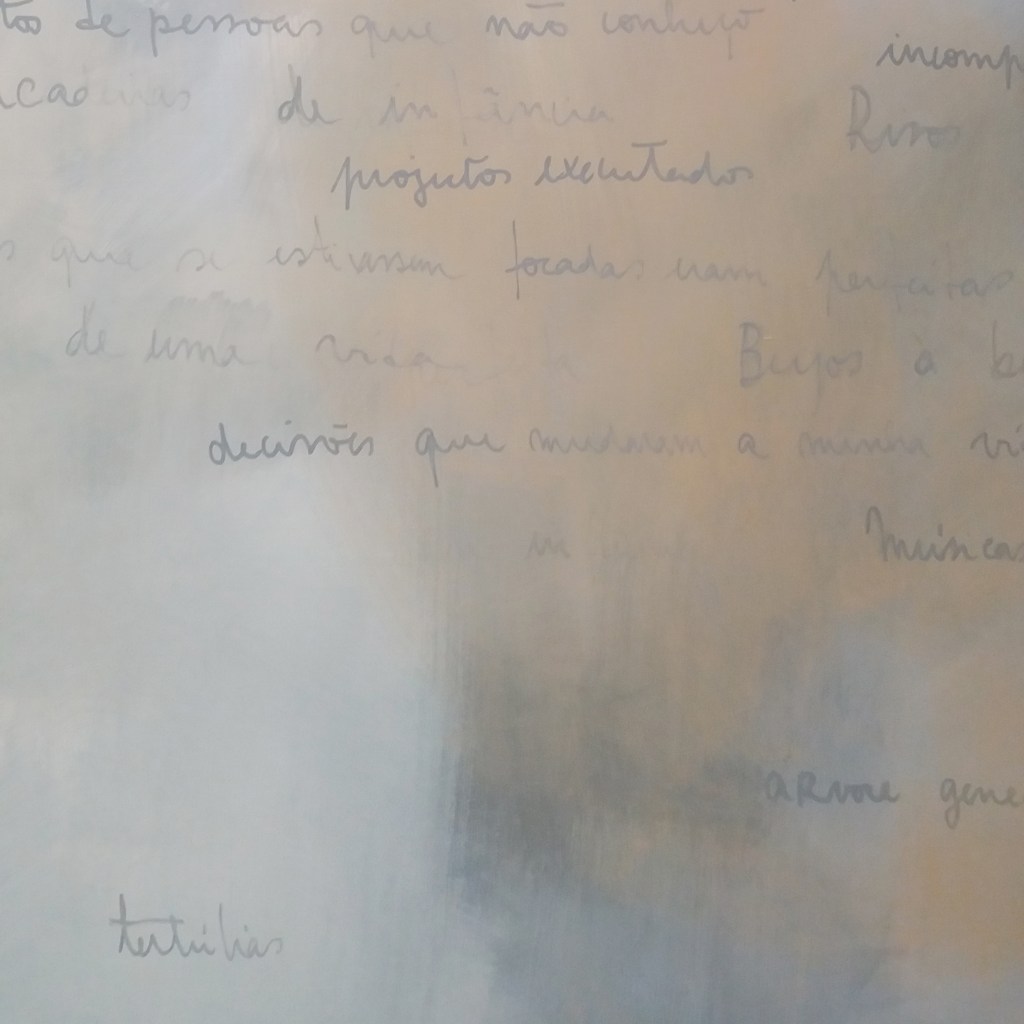 de pessoas que não conheço
incomp
de infância
Risos
projectos executados
que se estivessem focadas eram perfeitas
de uma vida
Beijos à b
decisões que mudaram a minha vi
Músicas
áRvore gene
tertúlias